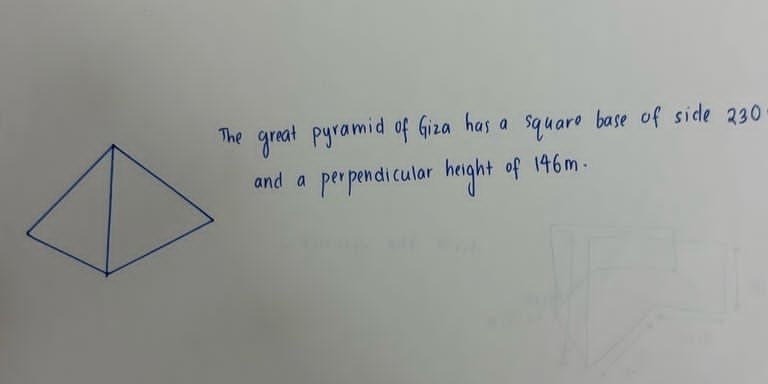 The great pyramid of Giza has a square base of side 230
and a perpendicular height of 146m.